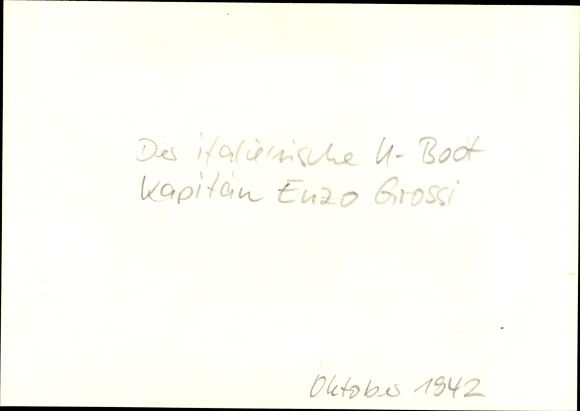 Der italienische U-Boot
Kapitän Enzo Grossi
Oktober 1942